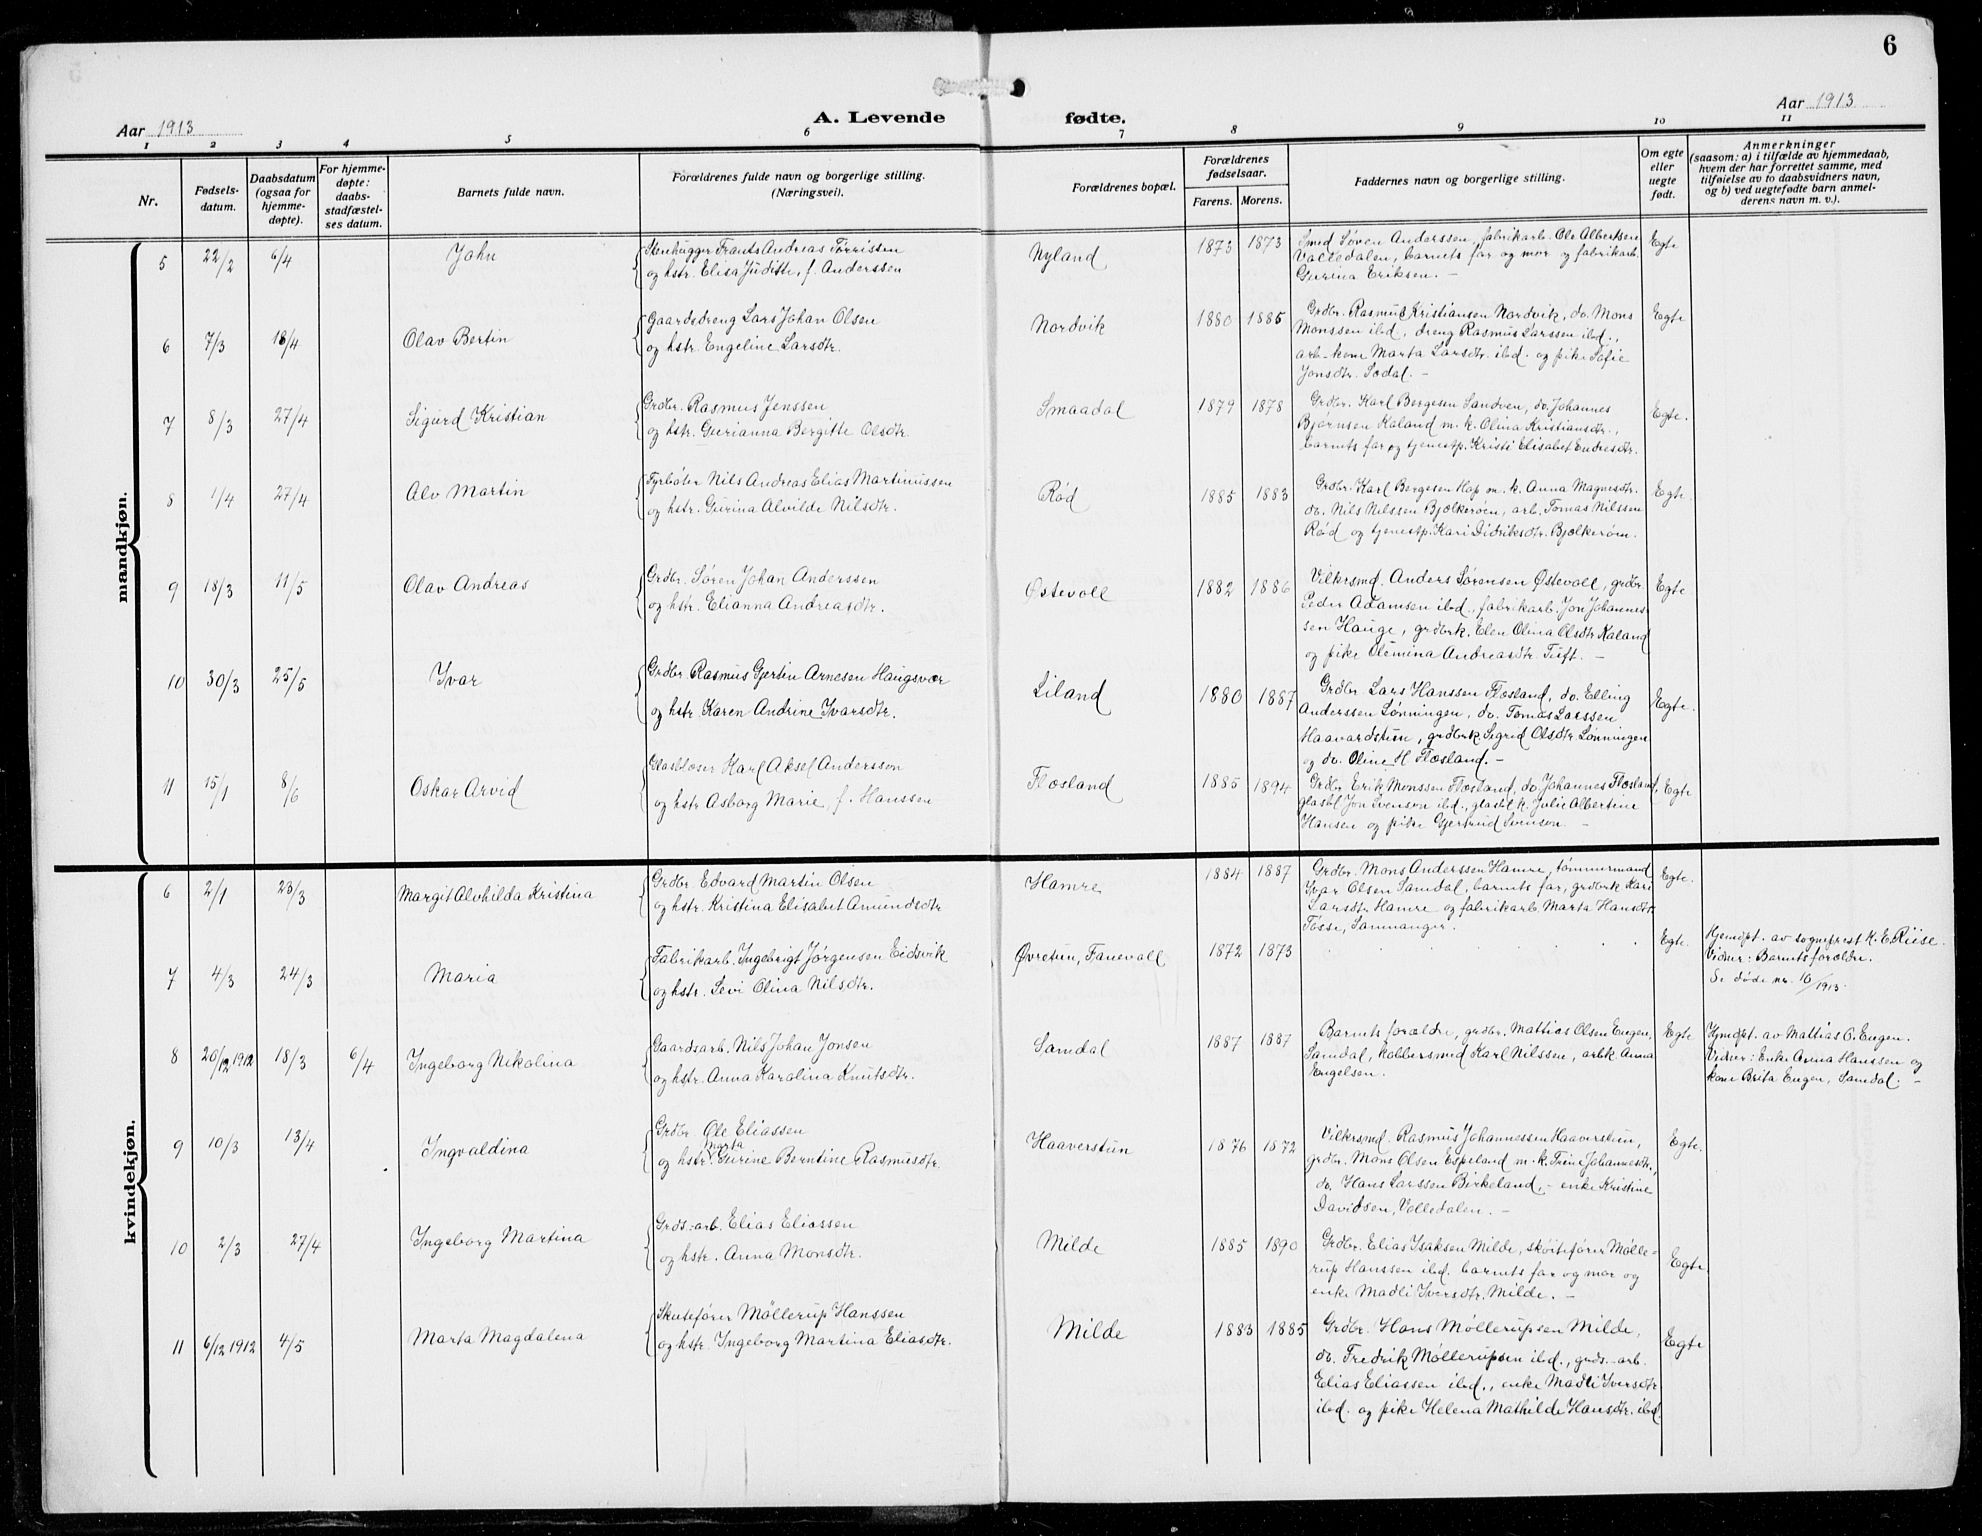 6
Aar 1913
A. Levende fødte.
Aar 1913
1 2 3 4 5 6 7 8 9 10 11
Nr.
Fødsels-
datum.
Daabsdatum
(ogsaa for
hjemme-
døpte).
For hjemme-
døpte:
daabs-
stadfæstel-
ses datum.
Barnets fulde navn.
Forældrenes fulde navn og borgerlige stilling.
(Næringsvei).
Forældrenes bopæl.
Forældrenes
fødselsaar.
Farens. Morens.
Faddernes navn og borgerlige stilling.
Om egte
eller
uegte
født.
Anmerkninger
(saasom: a) i tilfælde av hjemmedaab,
hvem der har forrettet samme, med
tilføielse av to daabsvidners navn,
og b) ved uegtefødte barn anmel-
derens navn m. v.).
mandkjøn.
5 22/2 6/4 John
Stenhugger Frants Andreas Tørrissen
og hstr. Elisa Juditte, f. Anderssen
Nyland 1873 1873
Smed Søren Anderssen, fabrikarb. Ole Albertsen
Valledalen, barnets far og mor og fabrikarb.
Gurina Eriksen. –
Egte
6 7/3 18/4 Olav Bertin
Gaardsdreng Lars Johan Olsen
og hstr. Engeline Larsdtr.
Nordvik 1880 1885
Grdbr. Rasmus Kristiansen Nordvik, do. Mons
Monssen ibd, dreng Rasmus Larssen ibd.,
arb-kone Marta Larsdtr. ibd. og pike Sofie
Jonsdtr. Sødal. –
Egte
7 8/3 27/4 Sigurd Kristian
Grdbr. Rasmus Jenssen
og hstr. Gurianna Bergitte Olsdtr.
Smaadal 1879 1878
Grdbr. Karl Bergesen Sandven, do. Johannes
Bjørnsen Kaland m. k. Olina Kristiansdtr.,
barnets far og tjenestp. Kristi Elisabet Endresdtr.
Egte.
8 1/4 27/4 Alv Martin
Fyrbøter Nils Andreas Elias Martinussen
og hstr. Gurina Alvilde Nilsdtr.
Rød 1885 1883
Grdbr. Karl Bergesen Hop m. k. Anna Magnesdtr.
do. Nils Nilssen Bjelkerøen, arb. Tomas Nilssen
Rød og tjenestp. Kari Didriksdtr. Bjelkerøen.
Egte.
9 18/3 11/5 Olav Andreas
Grdbr. Søren Johan Anderssen
og hstr. Elianna Andreasdtr.
Østevoll 1882 1886
Vilkrsmd. Anders Sørensen Østevoll, grdbr
Peder Adamsen ibd., fabrikarb. Jon Johannes-
sen Hauge, grdbrk. Elen Olina Olsdtr Kaland
og pike Olemina Andreasdtr. Tuft. –
Egte.
10 30/3 25/5 Ivar
Grdbr. Rasmus Gjertin Arnesen Haugsvær
og hstr. Karen Andrine Ivarsdtr.
Liland 1880 1887
Grdbr. Lars Hanssen Flæsland, do. Elling
Anderssen Lønningen, do. Tomas Larssen
Haavardstun, grdbrk. Sigrid Olsdtr Lønningen
og do. Oline H Flæsland. –
Egte.
11 15/1 8/6 Oskar Arvid
Glasblæser Karl Aksel Andersson
og hstr Asborg Marie, f. Hanssen
Flæsland 1885 1894
Grdbr. Erik Monssen Flæsland, do. Johannes Flæsland,
glasbl Jon Svenson ibd., glasbl k. Julie Albertine
Hansen og pike Gjertrud Svenson. –
Egte
kvindekjøn.
6 2/1 23/3 Margit Alvhilda Kristina
Grdbr. Edvard Martin Olsen
og hstr. Kristina Elisabet Amundsdtr
Hamre 1884 1887
Grdbr. Mons Anderssen Hamre, tømmermand
Ivar Olsen Samdal, barnets far, grdbrk Kari
Larsdtr Hamre og fabrikarb. Marta Hansdtr.
Tøsse, Samnanger.
Egte.
7 4/3 24/3 Maria
Fabrikarb. Ingebrigt Jørgensen Eidsvik
og hstr. Sevi Olina Nilsdtr.
Øvretun, Fanevoll 1872 1873
Egte.
Hjemdpt. av sogneprest K. E. Riise.
Vidner: Barnets forældre.
Se døde nr. 10/1913.
8 20/12 1912 18/3 6/4 Ingeborg Nikolina
Gaardsarb. Nils Johan Jonsen
og hstr. Anna Karolina Knutsdtr.
Samdal 1887 1887
Barnets forældre, grdbr. Mattias Olsen Eugen,
Samdal, kobbersmed Karl Nilssen, arbk Anna
Engelsen.
Egte
Hjmdpt. av Mattias O. Eugen.
Vidner: Enke Anna Hanssen og
kone Brita Eugen, Samdal. –
9 10/3 13/4 Ingvaldina
Grdbr Ole Eliassen
Marta
og hstr. Gurine Berntine Rasmusdtr.
Haaverstun 1876 1872
Vilkrsmd. Rasmus Johannessen Haaverstun,
grdbr. Mons Olsen Espeland m. k. Trine Johannesdtr.,
do. Hans Larssen Birkeland, – enke Kristine
Davidsen, Valledalen. –
Egte.
10 2/3 27/4 Ingeborg Martina
Grds-arb. Elias Eliassen
og hstr. Anna Monsdtr.
Milde 1885 1890
Grdbr. Elias Isaksen Milde, skøitefører Mølle-
rup Hanssen ibd. barnets far og mor og
enke Madli Iversdtr. Milde. –
Egte
11 6/12 1912 4/5 Marta Magdalena
Skutefører Møllerup Hanssen
og hstr. Ingeborg Martina Eliasdtr.
Milde 1883 1885
Grdbr. Hans Møllerupsen Milde,
do. Fredrik Møllerupsen ibd., grds-arb.
Elias Eliassen ibd., enke Madli Iversdtr
ibd. og pike Helena Mathilde Hansdtr. ibd.
Egte